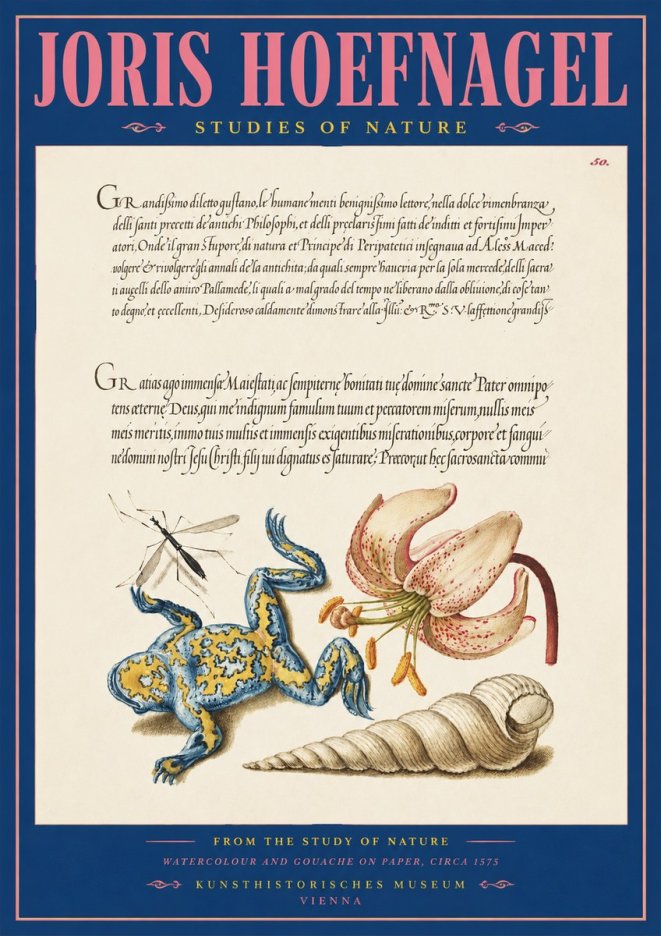 JORIS HOEFNAGEL
STUDIES OF NATURE
50.
GRandissimo diletto gustano, le humane menti benignissimo lettore, nella dolce rimenbranza
delli santi precetti de antichi Philosophi, et delli preclarissimi fatti de inditti et fortisimi Imper
atori, Onde il gran Stupore di natura et Principe di Peripatetici insegnaua ad Aless Maced:
volgere & rivolgere gli annali de la antichita; da quali sempre haueria per la sola mercede delli sacra
ti augelli dello antico Pallamede, li quali a malgrado del tempo ne liberano dalla obliuione, di cose tan
to degne, et eccellenti, Desideroso caldamente dimonstrare alla Illu: & Rma. S: V. laffettione grandiss
GRatias ago immensæ Maiestati, ac sempiternę bonitati tuę domine sancte Pater omnipo-
tens æternę Deus, qui me indignum famulum tuum et peccatorem miserum, nullis meis
meis meritis, immo tuis multis et immensis exigentibus miserationibus, corpore et sangui-
ne domini nostri Jesu Christi, filij tui dignatus es saturare; Precor, ut hęc sacrosancta commu
FROM THE STUDY OF NATURE
WATERCOLOUR AND GOUACHE ON PAPER, CIRCA 1575
KUNSTHISTORISCHES MUSEUM
VIENNA